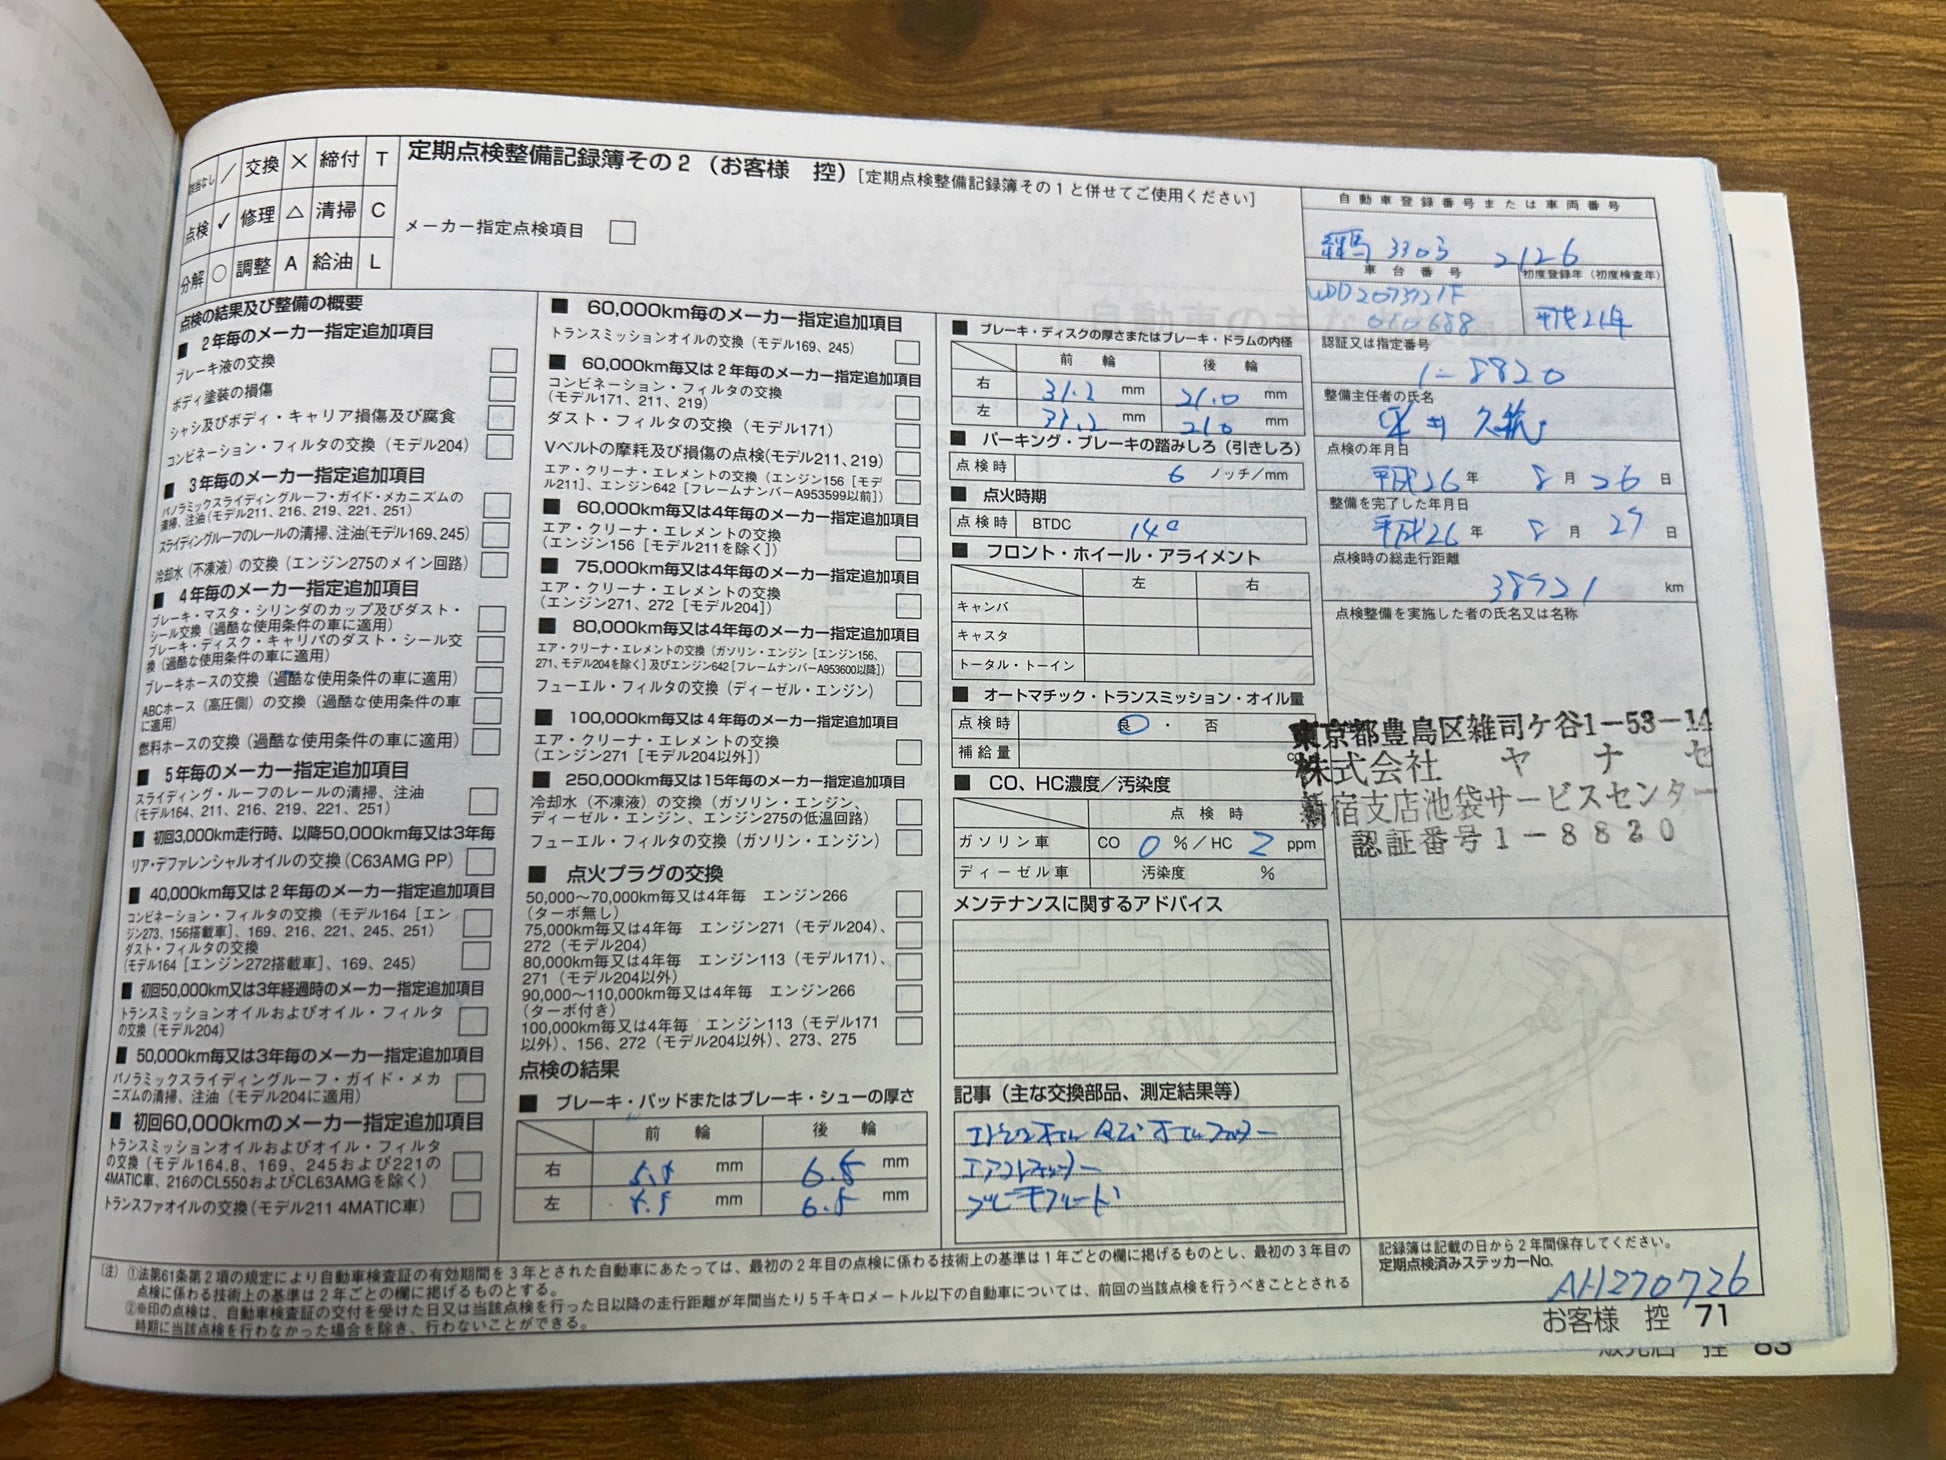 該当なし / 交換 × 締付 T
点検 ✓ 修理 △ 清掃 C
分解 ○ 調整 A 給油 L
定期点検整備記録簿その2（お客様 控）[定期点検整備記録簿その1と併せてご使用ください]
メーカー指定点検項目
点検の結果及び整備の概要
■ 2年毎のメーカー指定追加項目
ブレーキ液の交換
ボディ塗装の損傷
シャシ及びボディ・キャリア損傷及び腐食
コンビネーション・フィルタの交換（モデル204）
■ 3年毎のメーカー指定追加項目
パノラミックスライディングルーフ・ガイド・メカニズムの
清掃、注油（モデル211、216、219、221、251）
スライディングルーフのレールの清掃、注油(モデル169、245)
冷却水（不凍液）の交換（エンジン275のメイン回路）
■ 4年毎のメーカー指定追加項目
ブレーキ・マスタ・シリンダのカップ及びダスト・
シール交換（過酷な使用条件の車に適用）
ブレーキ・ディスク・キャリパのダスト・シール交
換（過酷な使用条件の車に適用）
ブレーキホースの交換（過酷な使用条件の車に適用）
ABCホース（高圧側）の交換（過酷な使用条件の車
に適用）
燃料ホースの交換（過酷な使用条件の車に適用）
■ 5年毎のメーカー指定追加項目
スライディング・ルーフのレールの清掃、注油
（モデル164、211、216、219、221、251）
■ 初回3,000km走行時、以降50,000km毎又は3年毎
リア・デファレンシャルオイルの交換（C63AMG PP）
■ 40,000km毎又は2年毎のメーカー指定追加項目
コンビネーション・フィルタの交換（モデル164［エン
ジン273、156搭載車］、169、216、221、245、251）
ダスト・フィルタの交換
（モデル164［エンジン272搭載車］、169、245）
■ 初回50,000km又は3年経過時のメーカー指定追加項目
トランスミッションオイルおよびオイル・フィルタ
の交換（モデル204）
■ 50,000km毎又は3年毎のメーカー指定追加項目
パノラミックスライディングルーフ・ガイド・メカ
ニズムの清掃、注油（モデル204に適用）
■ 初回60,000kmのメーカー指定追加項目
トランスミッションオイルおよびオイル・フィルタ
の交換（モデル164.8、169、245および221の
4MATIC車、216のCL550およびCL63AMGを除く）
トランスファオイルの交換（モデル211 4MATIC車）
■ 60,000km毎のメーカー指定追加項目
トランスミッションオイルの交換（モデル169、245）
■ 60,000km毎又は2年毎のメーカー指定追加項目
コンビネーション・フィルタの交換
（モデル171、211、219）
ダスト・フィルタの交換（モデル171）
Vベルトの摩耗及び損傷の点検(モデル211、219)
エア・クリーナ・エレメントの交換（エンジン156［モデ
ル211］、エンジン642［フレームナンバーA953599以前］）
■ 60,000km毎又は4年毎のメーカー指定追加項目
エア・クリーナ・エレメントの交換
（エンジン156［モデル211を除く］）
■ 75,000km毎又は4年毎のメーカー指定追加項目
エア・クリーナ・エレメントの交換
（エンジン271、272［モデル204］）
■ 80,000km毎又は4年毎のメーカー指定追加項目
エア・クリーナ・エレメントの交換（ガソリン・エンジン［エンジン156、
271、モデル204を除く］及びエンジン642［フレームナンバーA953600以降］）
フューエル・フィルタの交換（ディーゼル・エンジン）
■ 100,000km毎又は4年毎のメーカー指定追加項目
エア・クリーナ・エレメントの交換
（エンジン271［モデル204以外］）
■ 250,000km毎又は15年毎のメーカー指定追加項目
冷却水（不凍液）の交換（ガソリン・エンジン、
ディーゼル・エンジン、エンジン275の低温回路）
フューエル・フィルタの交換（ガソリン・エンジン）
■ 点火プラグの交換
50,000〜70,000km毎又は4年毎 エンジン266
（ターボ無し）
75,000km毎又は4年毎 エンジン271（モデル204）、
272（モデル204）
80,000km毎又は4年毎 エンジン113（モデル171）、
271（モデル204以外）
90,000〜110,000km毎又は4年毎 エンジン266
（ターボ付き）
100,000km毎又は4年毎 エンジン113（モデル171
以外）、156、272（モデル204以外）、273、275
点検の結果
■ ブレーキ・パッドまたはブレーキ・シューの厚さ
前 輪 後 輪
右 mm 6.5 mm
左 mm 6.5 mm
■ ブレーキ・ディスクの厚さまたはブレーキ・ドラムの内径
前 輪 後 輪
右 31.2 mm 21.0 mm
左 31.2 mm 21.0 mm
■ パーキング・ブレーキの踏みしろ（引きしろ）
点検時 6 ノッチ/mm
■ 点火時期
点検時 BTDC 14°
■ フロント・ホイール・アライメント
左 右
キャンバ
キャスタ
トータル・トーイン
■ オートマチック・トランスミッション・オイル量
点検時 良 ・ 否
補給量
■ CO、HC濃度／汚染度
点 検 時
ガソリン車 CO 0 %／HC 2 ppm
ディーゼル車 汚染度 %
メンテナンスに関するアドバイス
記事（主な交換部品、測定結果等）
エンジンオイル 及び オイルフィルター
エアコンフィルター
ブレーキフルード
自動車登録番号または車両番号
練馬 330ろ 2126
車台番号 初度登録年（初度検査年）
WDD207372 1F
010688 平成21年
認証又は指定番号
1-8820
整備主任者の氏名
点検の年月日
平成26年 8月26日
整備を完了した年月日
平成26年 8月27日
点検時の総走行距離
38721 km
点検整備を実施した者の氏名又は名称
東京都豊島区雑司ケ谷1-53-14
株式会社 ヤナセ
新宿支店池袋サービスセンター
認証番号1-8820
記録簿は記載の日から2年間保存してください。
定期点検済みステッカーNo.
AH270726
（注）①法第61条第2項の規定により自動車検査証の有効期間を3年とされた自動車にあたっては、最初の2年目の点検に係わる技術上の基準は1年ごとの欄に掲げるものとし、最初の3年目の
点検に係わる技術上の基準は2年ごとの欄に掲げるものとする。
②※印の点検は、自動車検査証の交付を受けた日又は当該点検を行った日以降の走行距離が年間当たり5千キロメートル以下の自動車については、前回の当該点検を行うべきこととされる
時期に当該点検を行わなかった場合を除き、行わないことができる。
お客様 控 71
販売店 控 83